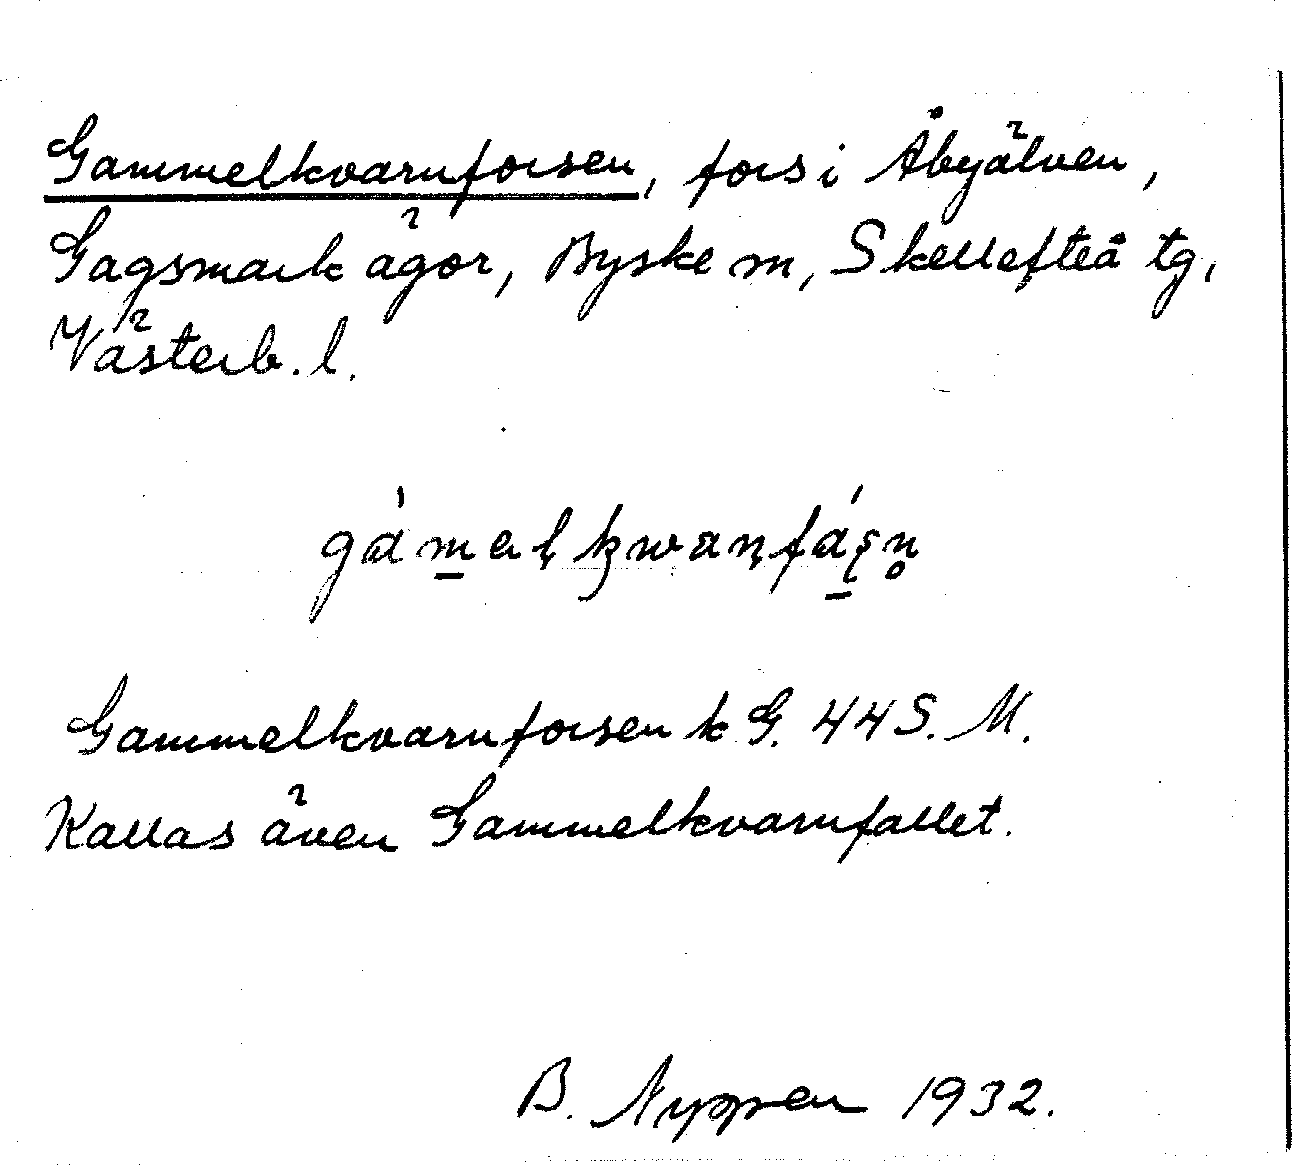 Gammelkvarnforsen, fors i Åbyälven,
Gagsmark ägor, Byske m, Skellefteå tg,
Västerb. l.
gám̲alkwaṇfá̲ṣṇ̥
Gammelkvarnforsen k G. 44 S. M.
Kallas även Gammelkvarnfallet.
B. Nyppen 1932.